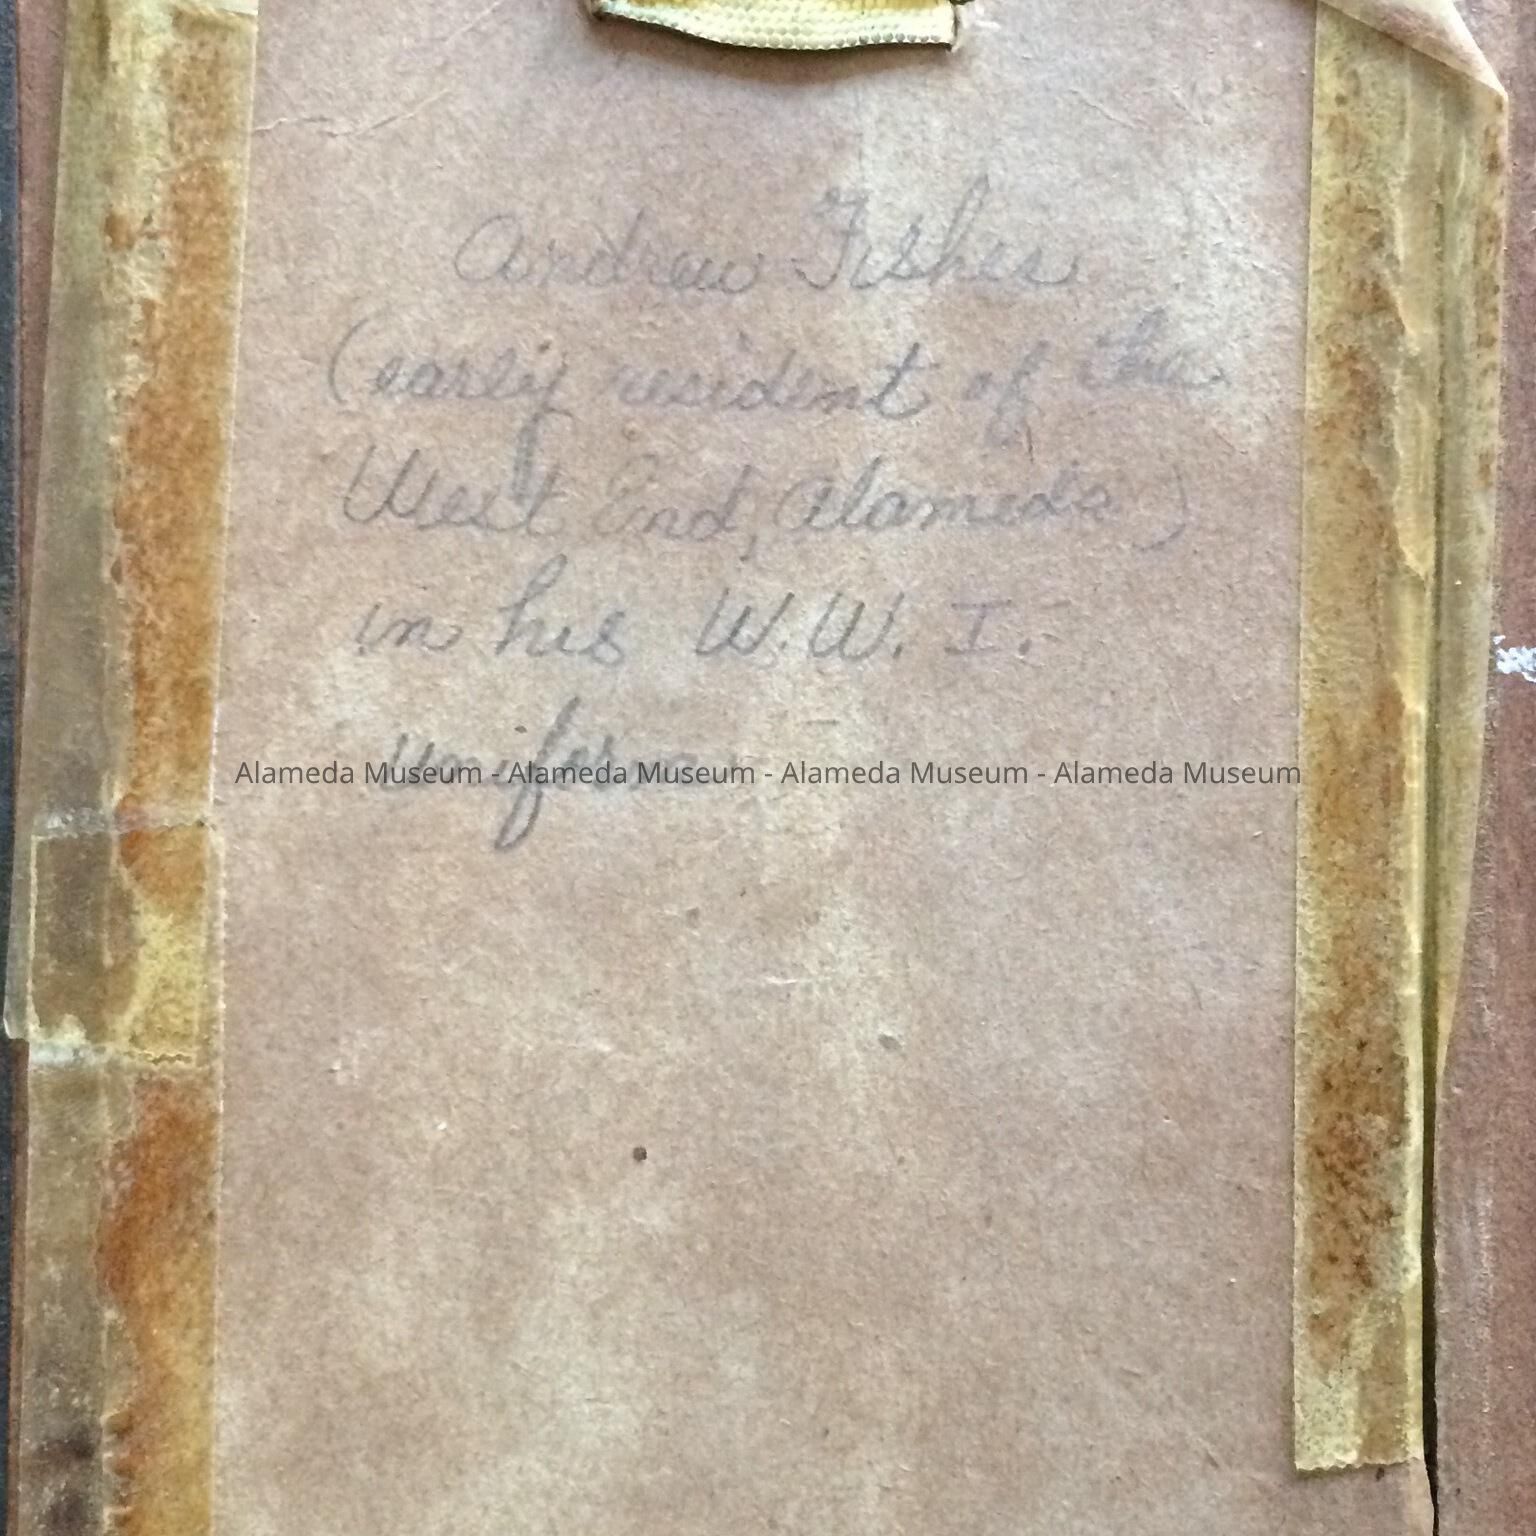 Andrew Fisher
(early resident of the
West End, Alameda)
in his W.W. I.
uniform
Alameda Museum - Alameda Museum - Alameda Museum - Alameda Museum